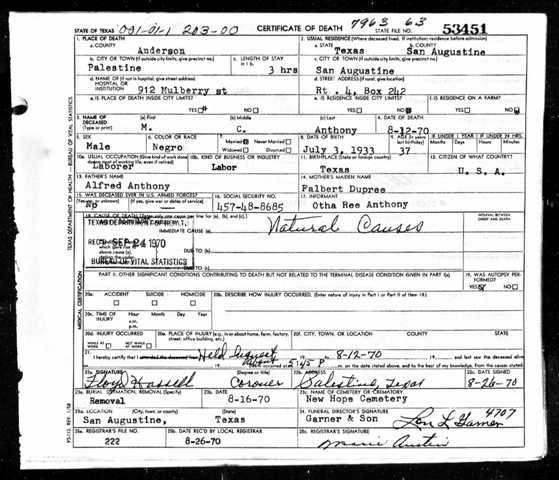 7963 63
STATE OF TEXAS 001-01-1 203-00 CERTIFICATE OF DEATH STATE FILE NO. 53451
1. PLACE OF DEATH
a. COUNTY Anderson
2. USUAL RESIDENCE (Where deceased lived. If institution: residence before admission)
a. STATE Texas b. COUNTY San Augustine
b. CITY OR TOWN (If outside city limits, give precinct no.) Palestine
c. LENGTH OF STAY in 1 b. 3 hrs
c. CITY OR TOWN (If outside city limits, give precinct no.) San Augustine
d. NAME OF (If not in hospital, give street address) HOSPITAL OR INSTITUTION 912 Mulberry st
d. STREET ADDRESS (If rural, give location) Rt. 4, Box 242
e. IS PLACE OF DEATH INSIDE CITY LIMITS? YES NO
e. IS RESIDENCE INSIDE CITY LIMITS? YES NO
f. IS RESIDENCE ON A FARM? YES NO
3. NAME OF DECEASED (Type or print) (a) First M. (b) Middle C. (c) Last Anthony
4. DATE OF DEATH 8-12-70
5. SEX Male
6. COLOR OR RACE Negro
7. Married Never Married Widowed Divorced
8. DATE OF BIRTH July 3, 1933
9. AGE (In years last birthday) 37
IF UNDER 1 YEAR Months Days
IF UNDER 24 HRS. Hours Min.
10a. USUAL OCCUPATION (Give kind of work done during most of working life, even if retired) Laborer
10b. KIND OF BUSINESS OR INDUSTRY Labor
11. BIRTHPLACE (State or foreign country) Texas
12. CITIZEN OF WHAT COUNTRY? U. S. A.
13. FATHER'S NAME Alfred Anthony
14. MOTHER'S MAIDEN NAME Falbert Dupree
15. WAS DECEASED EVER IN U.S. ARMED FORCES? (Yes, no, or unknown) (If yes, give war or dates of service) No
16. SOCIAL SECURITY NO. 457-48-8685
17. INFORMANT Otha Ree Anthony
18. CAUSE OF DEATH [Enter only one cause per line for (a), (b), and (c).]
INTERVAL BETWEEN ONSET AND DEATH
IMMEDIATE CAUSE (a) Natural Causes
REC'D SEP 24 1970
DUE TO (b)
BUREAU OF VITAL STATISTICS
DUE TO (c)
PART II. OTHER SIGNIFICANT CONDITIONS CONTRIBUTING TO DEATH BUT NOT RELATED TO THE TERMINAL DISEASE CONDITION GIVEN IN PART I(a)
19. WAS AUTOPSY PERFORMED? YES NO
20a. ACCIDENT SUICIDE HOMICIDE
20b. DESCRIBE HOW INJURY OCCURRED. (Enter nature of injury in Part I or Part II of item 18.)
20c. TIME OF INJURY Hour Month Day Year
a.m.
p.m.
20d. INJURY OCCURRED
WHILE AT WORK NOT WHILE AT WORK
20e. PLACE OF INJURY (e.g., in or about home, farm, factory, street, office building, etc.)
20f. CITY, TOWN, OR LOCATION COUNTY STATE
21. I hereby certify that I attended the deceased from Held Inquest 8-12-70 19 I last saw the deceased alive
about 5:45 P m. on the date stated above, and to the best of my knowledge, from the causes stated.
22a. SIGNATURE Floyd Hassell (Degree or title) Coroner
22b. ADDRESS Palestine, Texas
22c. DATE SIGNED 8-26-70
23a. BURIAL, CREMATION, REMOVAL (Specify) Removal
23b. DATE 8-16-70
23c. NAME OF CEMETERY OR CREMATORY New Hope Cemetery
23d. LOCATION (City, town, or county) (State) San Augustine, Texas
24. FUNERAL DIRECTOR'S SIGNATURE Garner & Son Lon L Garner 4707
25a. REGISTRAR'S FILE NO. 222
25b. DATE REC'D BY LOCAL REGISTRAR 8-26-70
25c. REGISTRAR'S SIGNATURE Marie Austin
TEXAS DEPARTMENT OF HEALTH — BUREAU OF VITAL STATISTICS
MEDICAL CERTIFICATION